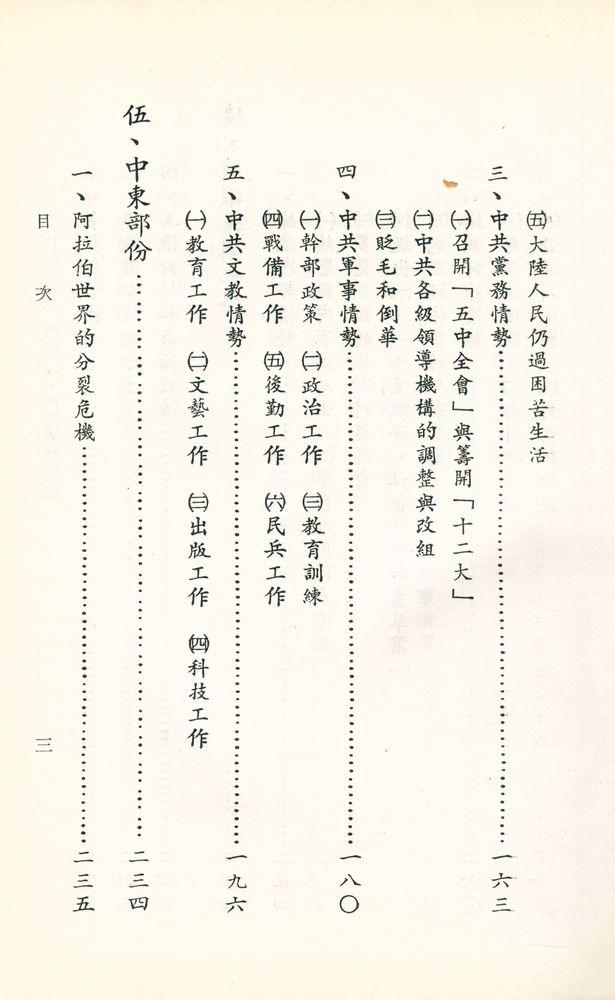 ㈤大陸人民仍過困苦生活
三、中共黨務情勢……一六三
㈠召開「五中全會」與籌開「十二大」
㈡中共各級領導機構的調整與改組
㈢貶毛和倒華
四、中共軍事情勢……一八〇
㈠幹部政策 ㈡政治工作 ㈢教育訓練
㈣戰備工作 ㈤後勤工作 ㈥民兵工作
五、中共文教情勢……一九六
㈠教育工作 ㈡文藝工作 ㈢出版工作 ㈣科技工作
伍、中東部份……二三四
一、阿拉伯世界的分裂危機……二三五
目次 三